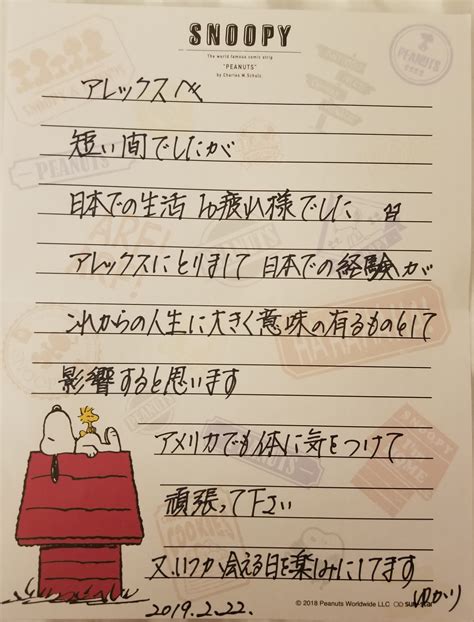 SNOOPY
The world famous comic strip
"PEANUTS"
by Charles M. Schulz
アレックスへ
短い間でしたが
日本での生活 お疲れ様でした
アレックスにとりまして 日本での経験が
これからの人生に大きく意味の有るものとして
影響すると思います
アメリカでも体に気をつけて
頑張って下さい
又、いつか会える日を楽しみにしてます
2019.2.22. ゆかり
© 2018 Peanuts Worldwide LLC